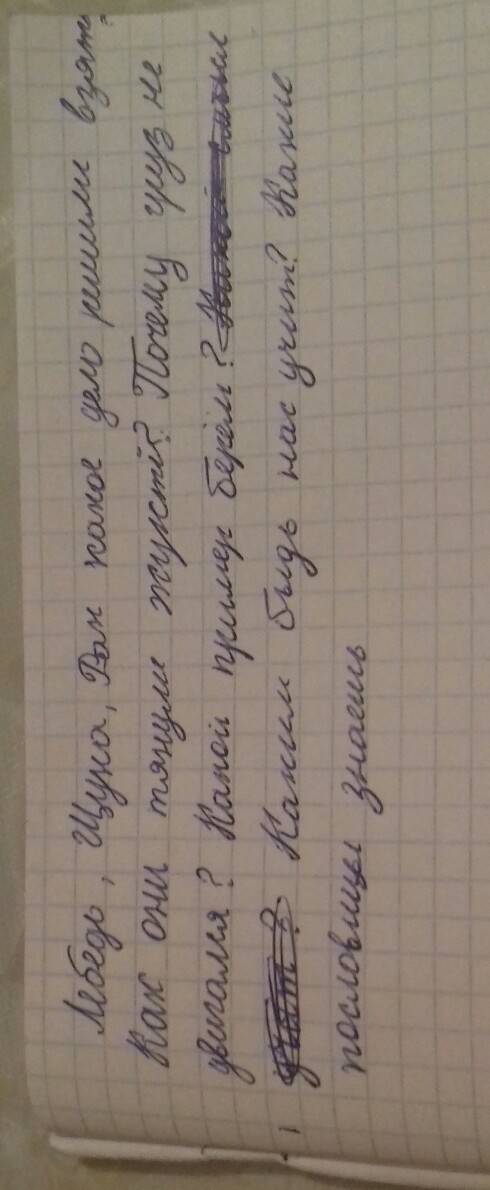 Лебедь, Щука, Рак какое дело решили взять?
Как они тянули жукти? Почему груз не
двигался? Какой пример берём?
Каким быдь нас учит? Какие
пословицы знаешь